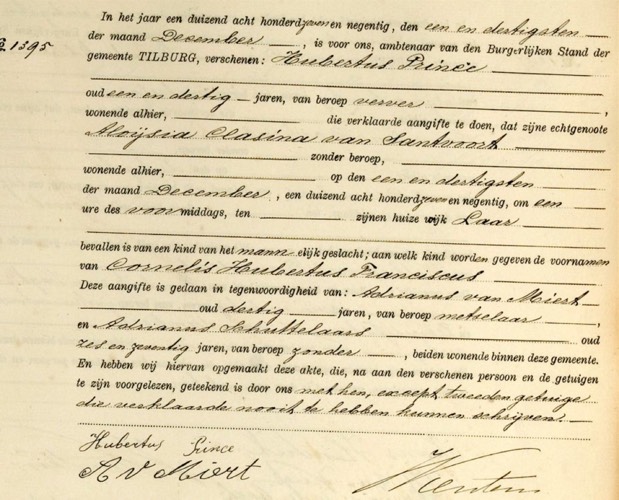 In het jaar een duizend acht honderd zeven en negentig, den een en dertigsten
No 1395
der maand December, is voor ons, ambtenaar van den Burgerlijken Stand der
gemeente TILBURG, verschenen: Hubertus Prince
oud een en dertig jaren, van beroep verver,
wonende alhier, die verklaarde aangifte te doen, dat zijne echtgenoote
Aloÿsia Clasina van Santvoort
zonder beroep,
wonende alhier, op den een en dertigsten
der maand December, een duizend acht honderd zeven en negentig, om een
ure des voormiddags, ten zijnen huize wijk Laar
bevallen is van een kind van het mannelijk geslacht; aan welk kind worden gegeven de voornamen
van Cornelis Hubertus Franciscus
Deze aangifte is gedaan in tegenwoordigheid van: Adrianus van Miert
oud dertig jaren, van beroep metselaar,
en Adrianus Schuttelaars oud
zes en zeventig jaren, van beroep zonder, beiden wonende binnen deze gemeente.
En hebben wij hiervan opgemaakt deze akte, die, na aan den verschenen persoon en de getuigen
te zijn voorgelezen, geteekend is door ons met hen, except tweeden getuige
die verklaarde nooit te hebben kunnen schrijven.
Hubertus Prince
A v Miert